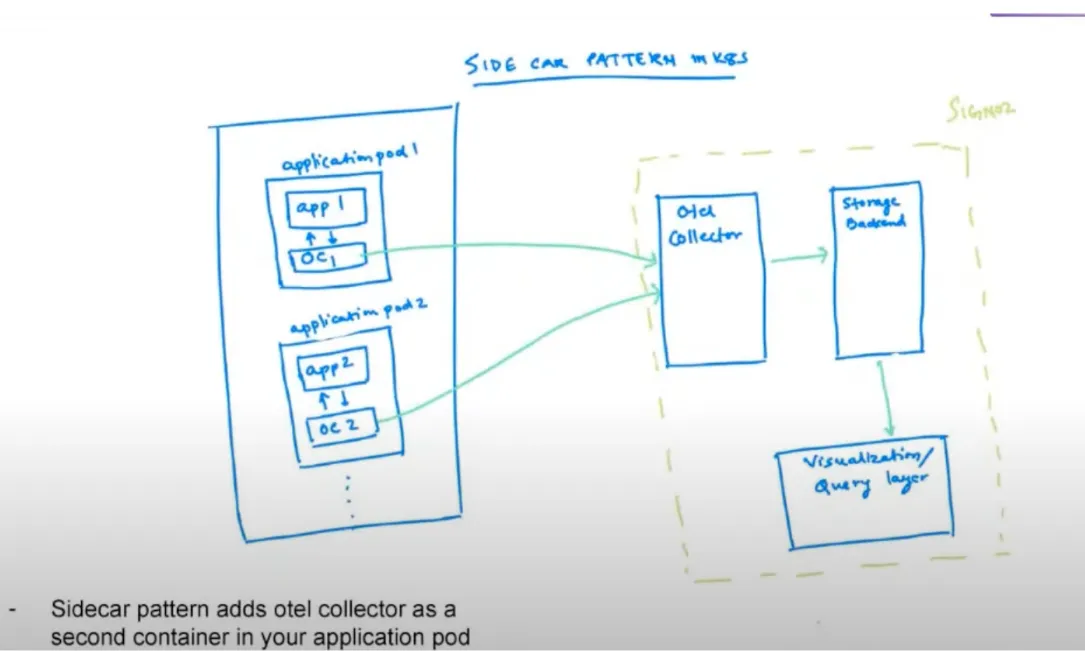 SIDE CAR PATTERN in K8S
SIGNOZ
application pod 1
app 1
OC1
application pod 2
app 2
OC 2
Otel
Collector
Storage
Backend
Visualization/
Query layer
- Sidecar pattern adds otel collector as a
second container in your application pod